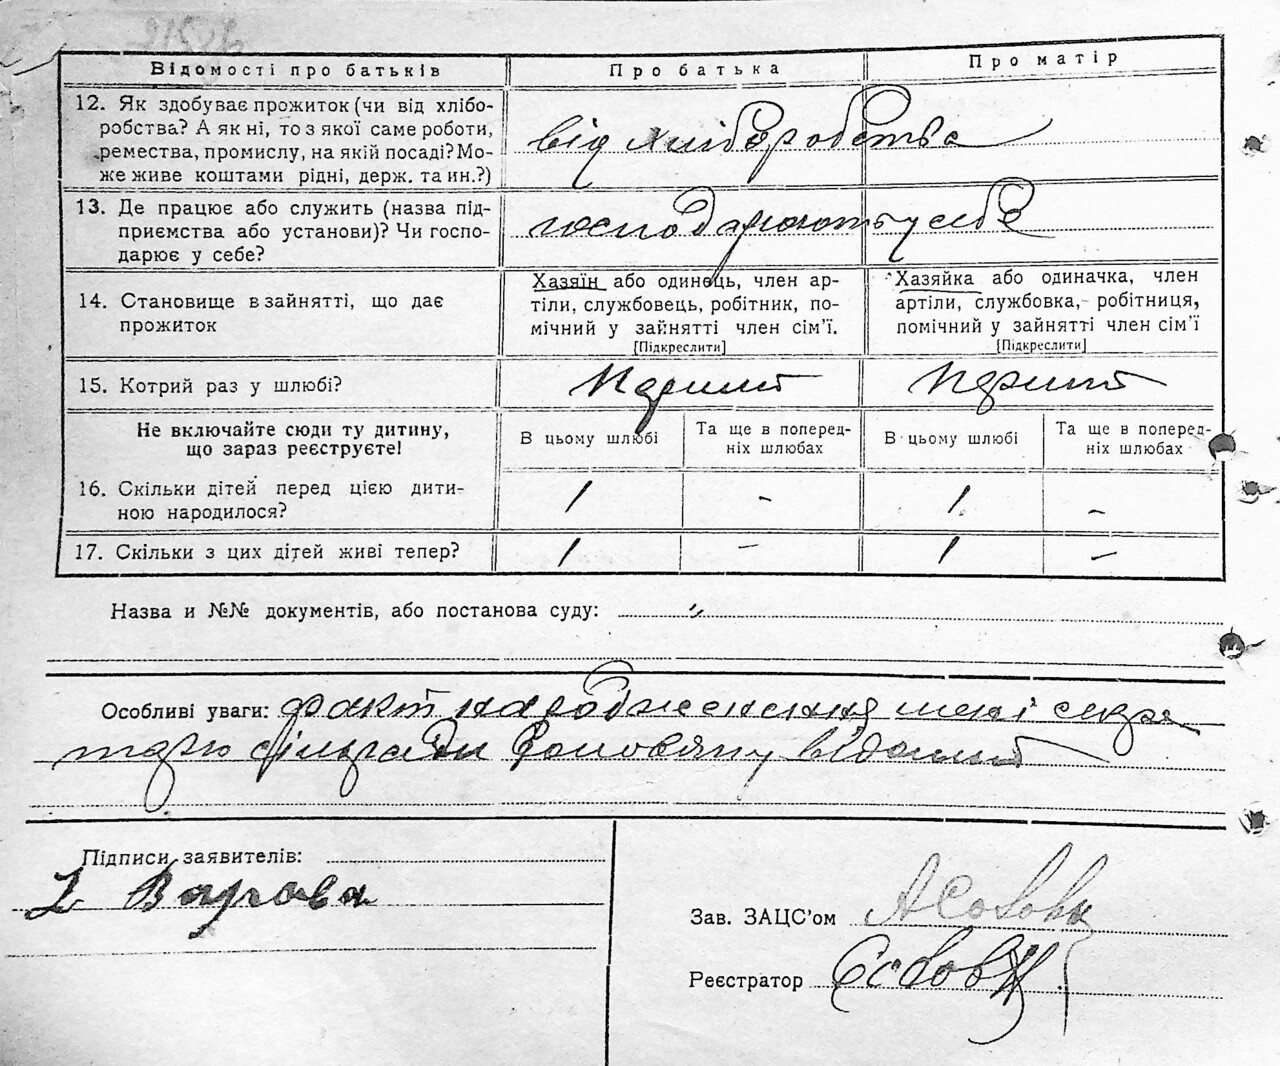 Відомості про батьків
Про батька
Про матір
12. Як здобуває прожиток (чи від хлібо-
робства? А як ні, то з якої саме роботи,
ремества, промислу, на якій посаді? Мо-
же живе коштами рідні, держ. та ин.?)
від хліборобства
13. Де працює або служить (назва під-
приємства або установи)? Чи госпо-
дарює у себе?
господарюють у себе
14. Становище в зайнятті, що дає
прожиток
Хазяїн або одинець, член ар-
тіли, службовець, робітник, по-
мічний у зайнятті член сім'ї.
[Підкреслити]
Хазяйка або одиначка, член
артіли, службовка, робітниця,
помічний у зайнятті член сім'ї
[Підкреслити]
15. Котрий раз у шлюбі?
Перший
Перший
Не включайте сюди ту дитину,
що зараз реєструєте!
В цьому шлюбі
Та ще в поперед-
ніх шлюбах
В цьому шлюбі
Та ще в поперед-
ніх шлюбах
16. Скільки дітей перед цією дити-
ною народилося?
1 - 1 -
17. Скільки з цих дітей живі тепер?
1 - 1 -
Назва и №№ документів, або постанова суду:
Особливі уваги: факт народження мені секре
тарю сільради відомий
Підписи заявителів:
Зав. ЗАЦС'ом
Реєстратор